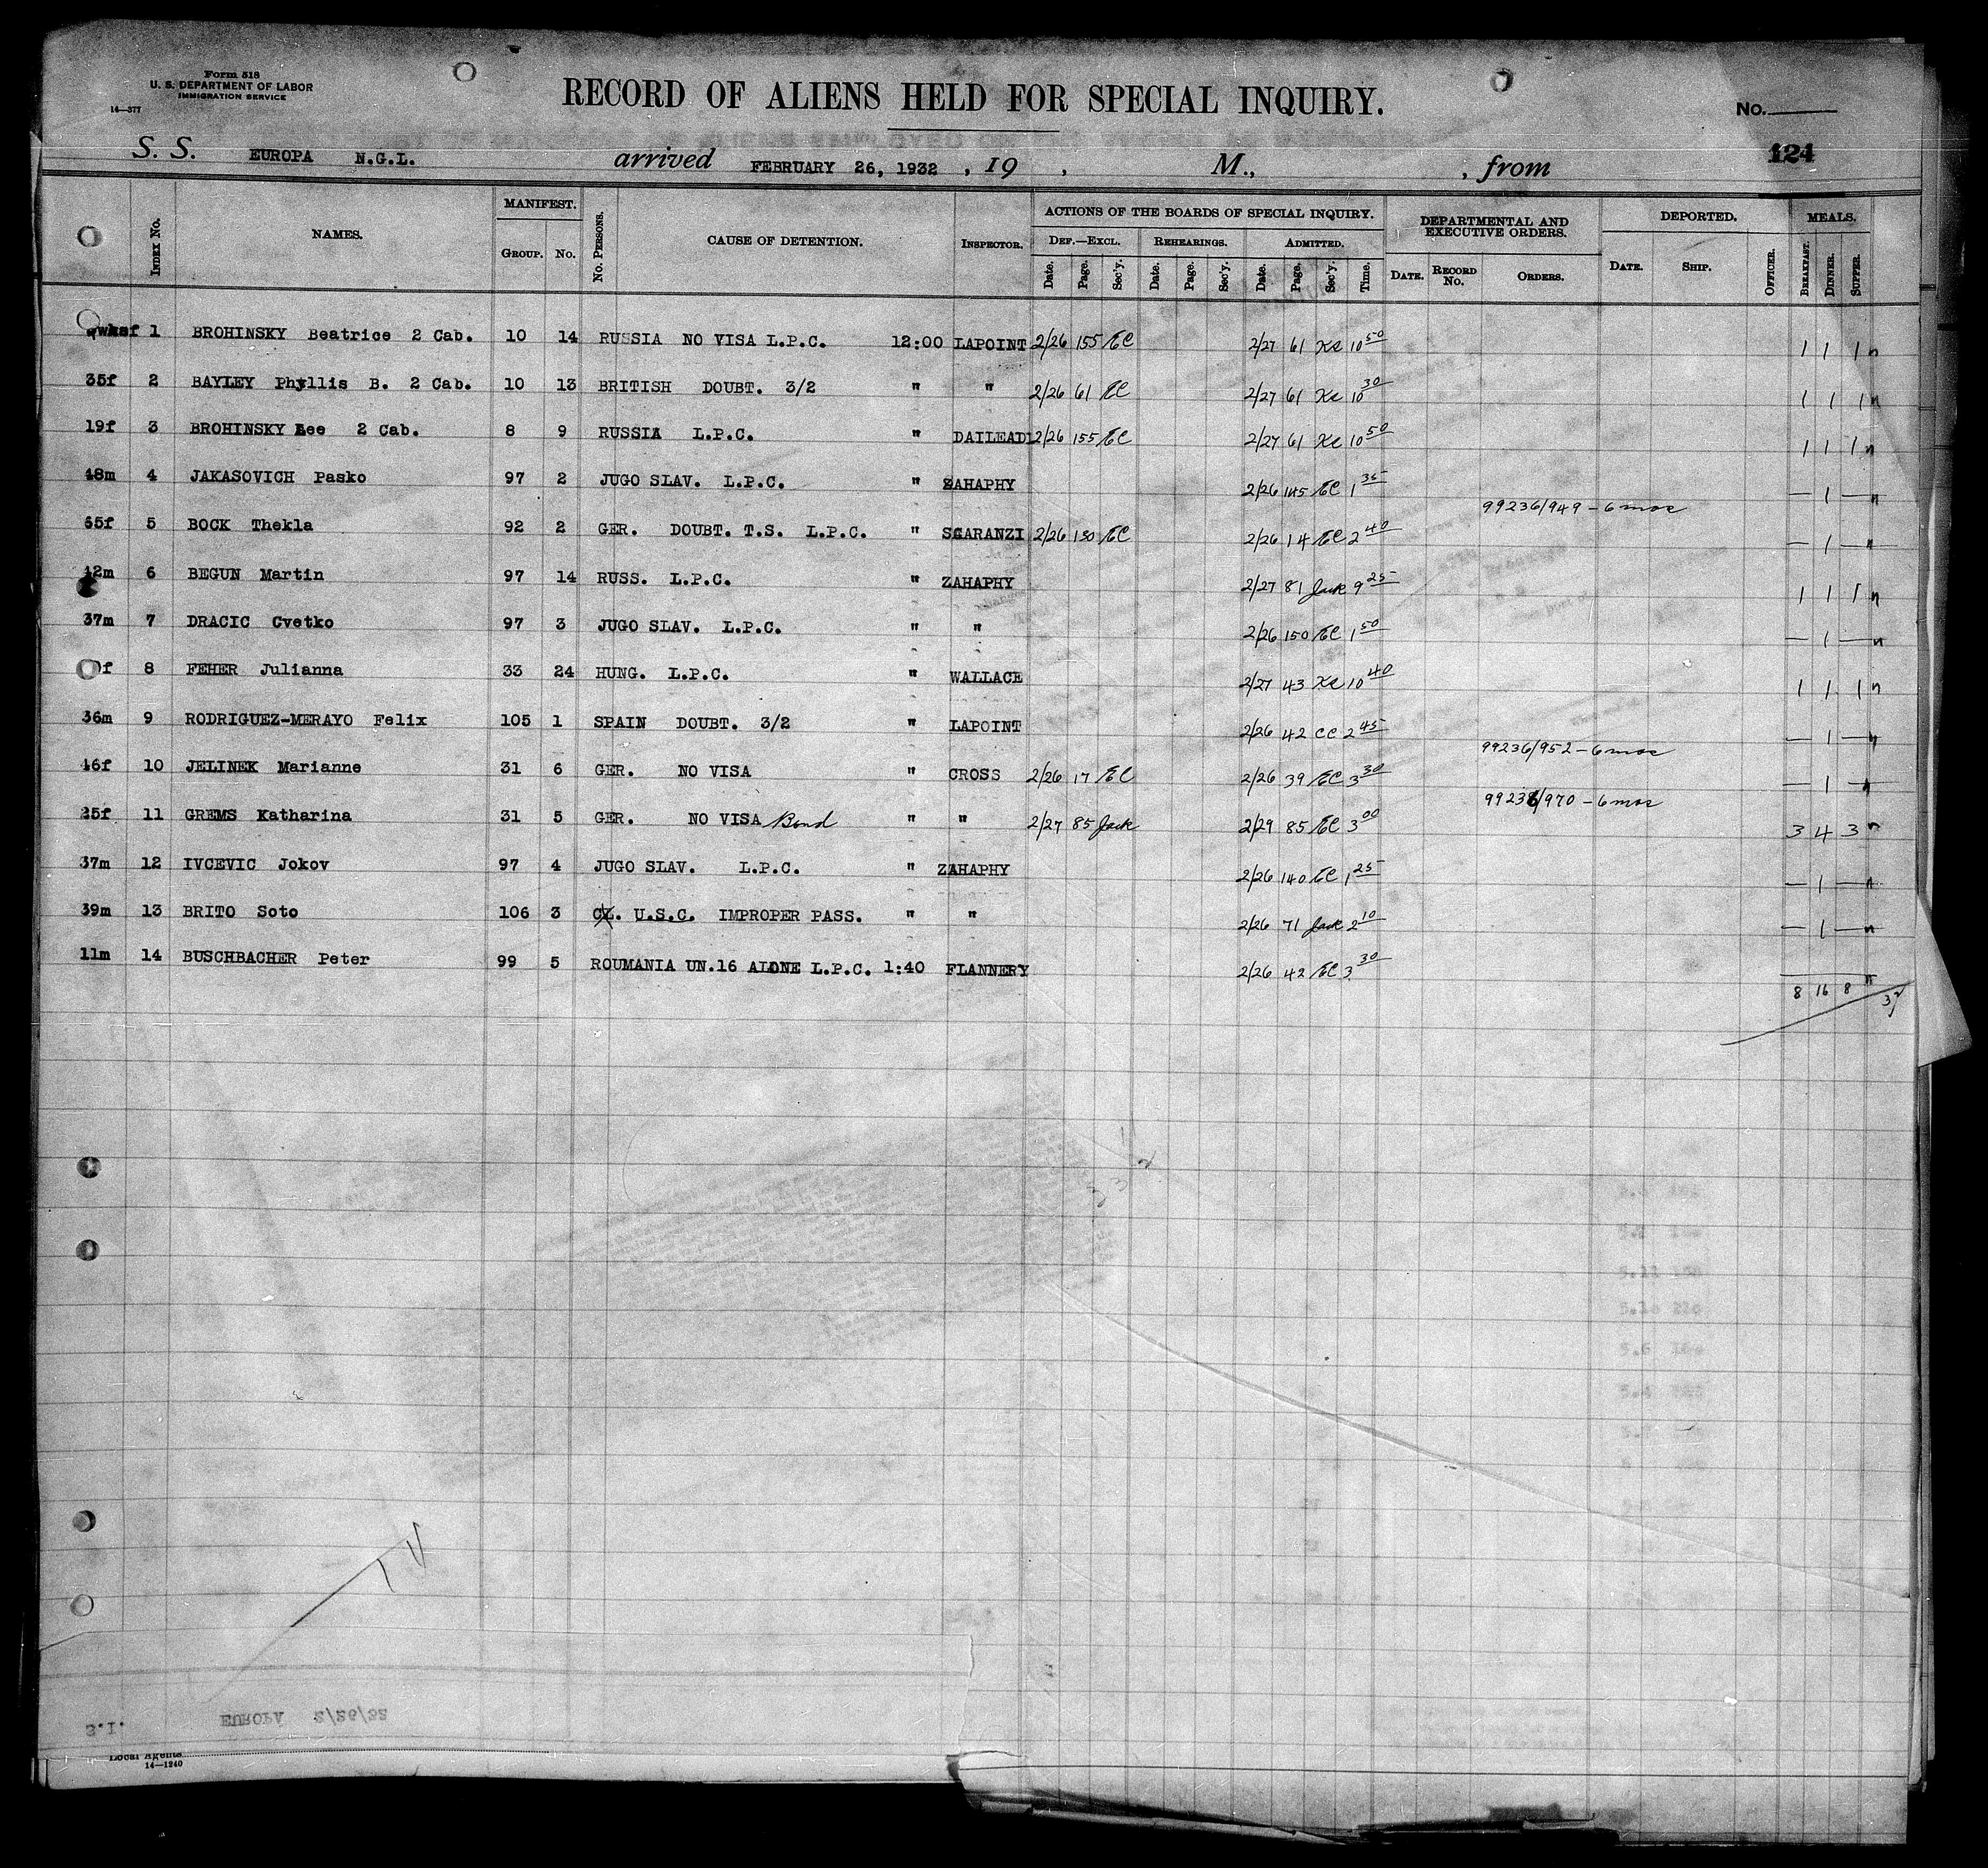 Form 518
U. S. DEPARTMENT OF LABOR
IMMIGRATION SERVICE
14—377
RECORD OF ALIENS HELD FOR SPECIAL INQUIRY.
No.
124
S. S. EUROPA N.G.L. arrived FEBRUARY 26, 1932 , 19 , M., , from
INDEX No. NAMES. MANIFEST. GROUP. No. No. PERSONS. CAUSE OF DETENTION. INSPECTOR. ACTIONS OF THE BOARDS OF SPECIAL INQUIRY. DEF.—EXCL. Date. Page. Sec'y. REHEARINGS. Date. Page. Sec'y. ADMITTED. Date. Page. Sec'y. Time. DEPARTMENTAL AND EXECUTIVE ORDERS. DATE. RECORD No. ORDERS. DEPORTED. DATE. SHIP. OFFICER. MEALS. BREAKFAST. DINNER. SUPPER.
1 BROHINSKY Beatrice 2 Cab. 10 14 RUSSIA NO VISA L.P.C. 12:00 LAPOINT 2/26 155 EC 2/27 61 10 50 1 1 1 n
35f 2 BAYLEY Phyllis B. 2 Cab. 10 13 BRITISH DOUBT. 3/2 " " 2/26 61 EC 2/27 61 10 30 1 1 1 n
19f 3 BROHINSKY Lee 2 Cab. 8 9 RUSSIA L.P.C. " DAILEAD 2/26 155 EC 2/27 61 10 50 1 1 1 n
48m 4 JAKASOVICH Pasko 97 2 JUGO SLAV. L.P.C. " ZAHAPHY 2/26 145 EC 1 35 — 1 — n
99236/949 - 6 mos
65f 5 BOCK Thekla 92 2 GER. DOUBT. T.S. L.P.C. " SGARANZI 2/26 130 EC 2/26 14 EC 2 40 — 1 — n
42m 6 BEGUN Martin 97 14 RUSS. L.P.C. " ZAHAPHY 2/27 81 Jack 9 25 1 1 1 n
37m 7 DRACIC Cvetko 97 3 JUGO SLAV. L.P.C. " " 2/26 150 EC 1 50 — 1 — n
f 8 FEHER Julianna 33 24 HUNG. L.P.C. " WALLACE 2/27 43 10 40 1 1 1 n
36m 9 RODRIGUEZ-MERAYO Felix 105 1 SPAIN DOUBT. 3/2 " LAPOINT 2/26 42 2 45 — 1 — n
99236/952 - 6 mos
46f 10 JELINEK Marianne 31 6 GER. NO VISA " CROSS 2/26 17 EC 2/26 39 EC 3 30 — 1 — n
99236/970 - 6 mos
25f 11 GREMS Katharina 31 5 GER. NO VISA Bond " " 2/27 85 Jack 2/29 85 EC 3 00 3 4 3 n
37m 12 IVCEVIC Jokov 97 4 JUGO SLAV. L.P.C. " ZAHAPHY 2/26 140 EC 1 25 — 1 — n
39m 13 BRITO Soto 106 3 CL. U.S.C. IMPROPER PASS. " " 2/26 71 Jack 2 10 — 1 — n
11m 14 BUSCHBACHER Peter 99 5 ROUMANIA UN.16 ALONE L.P.C. 1:40 FLANNERY 2/26 42 EC 3 30 n
8 16 8 32
S.I. EUROPA 2/26/32
Local Agents
14—1240